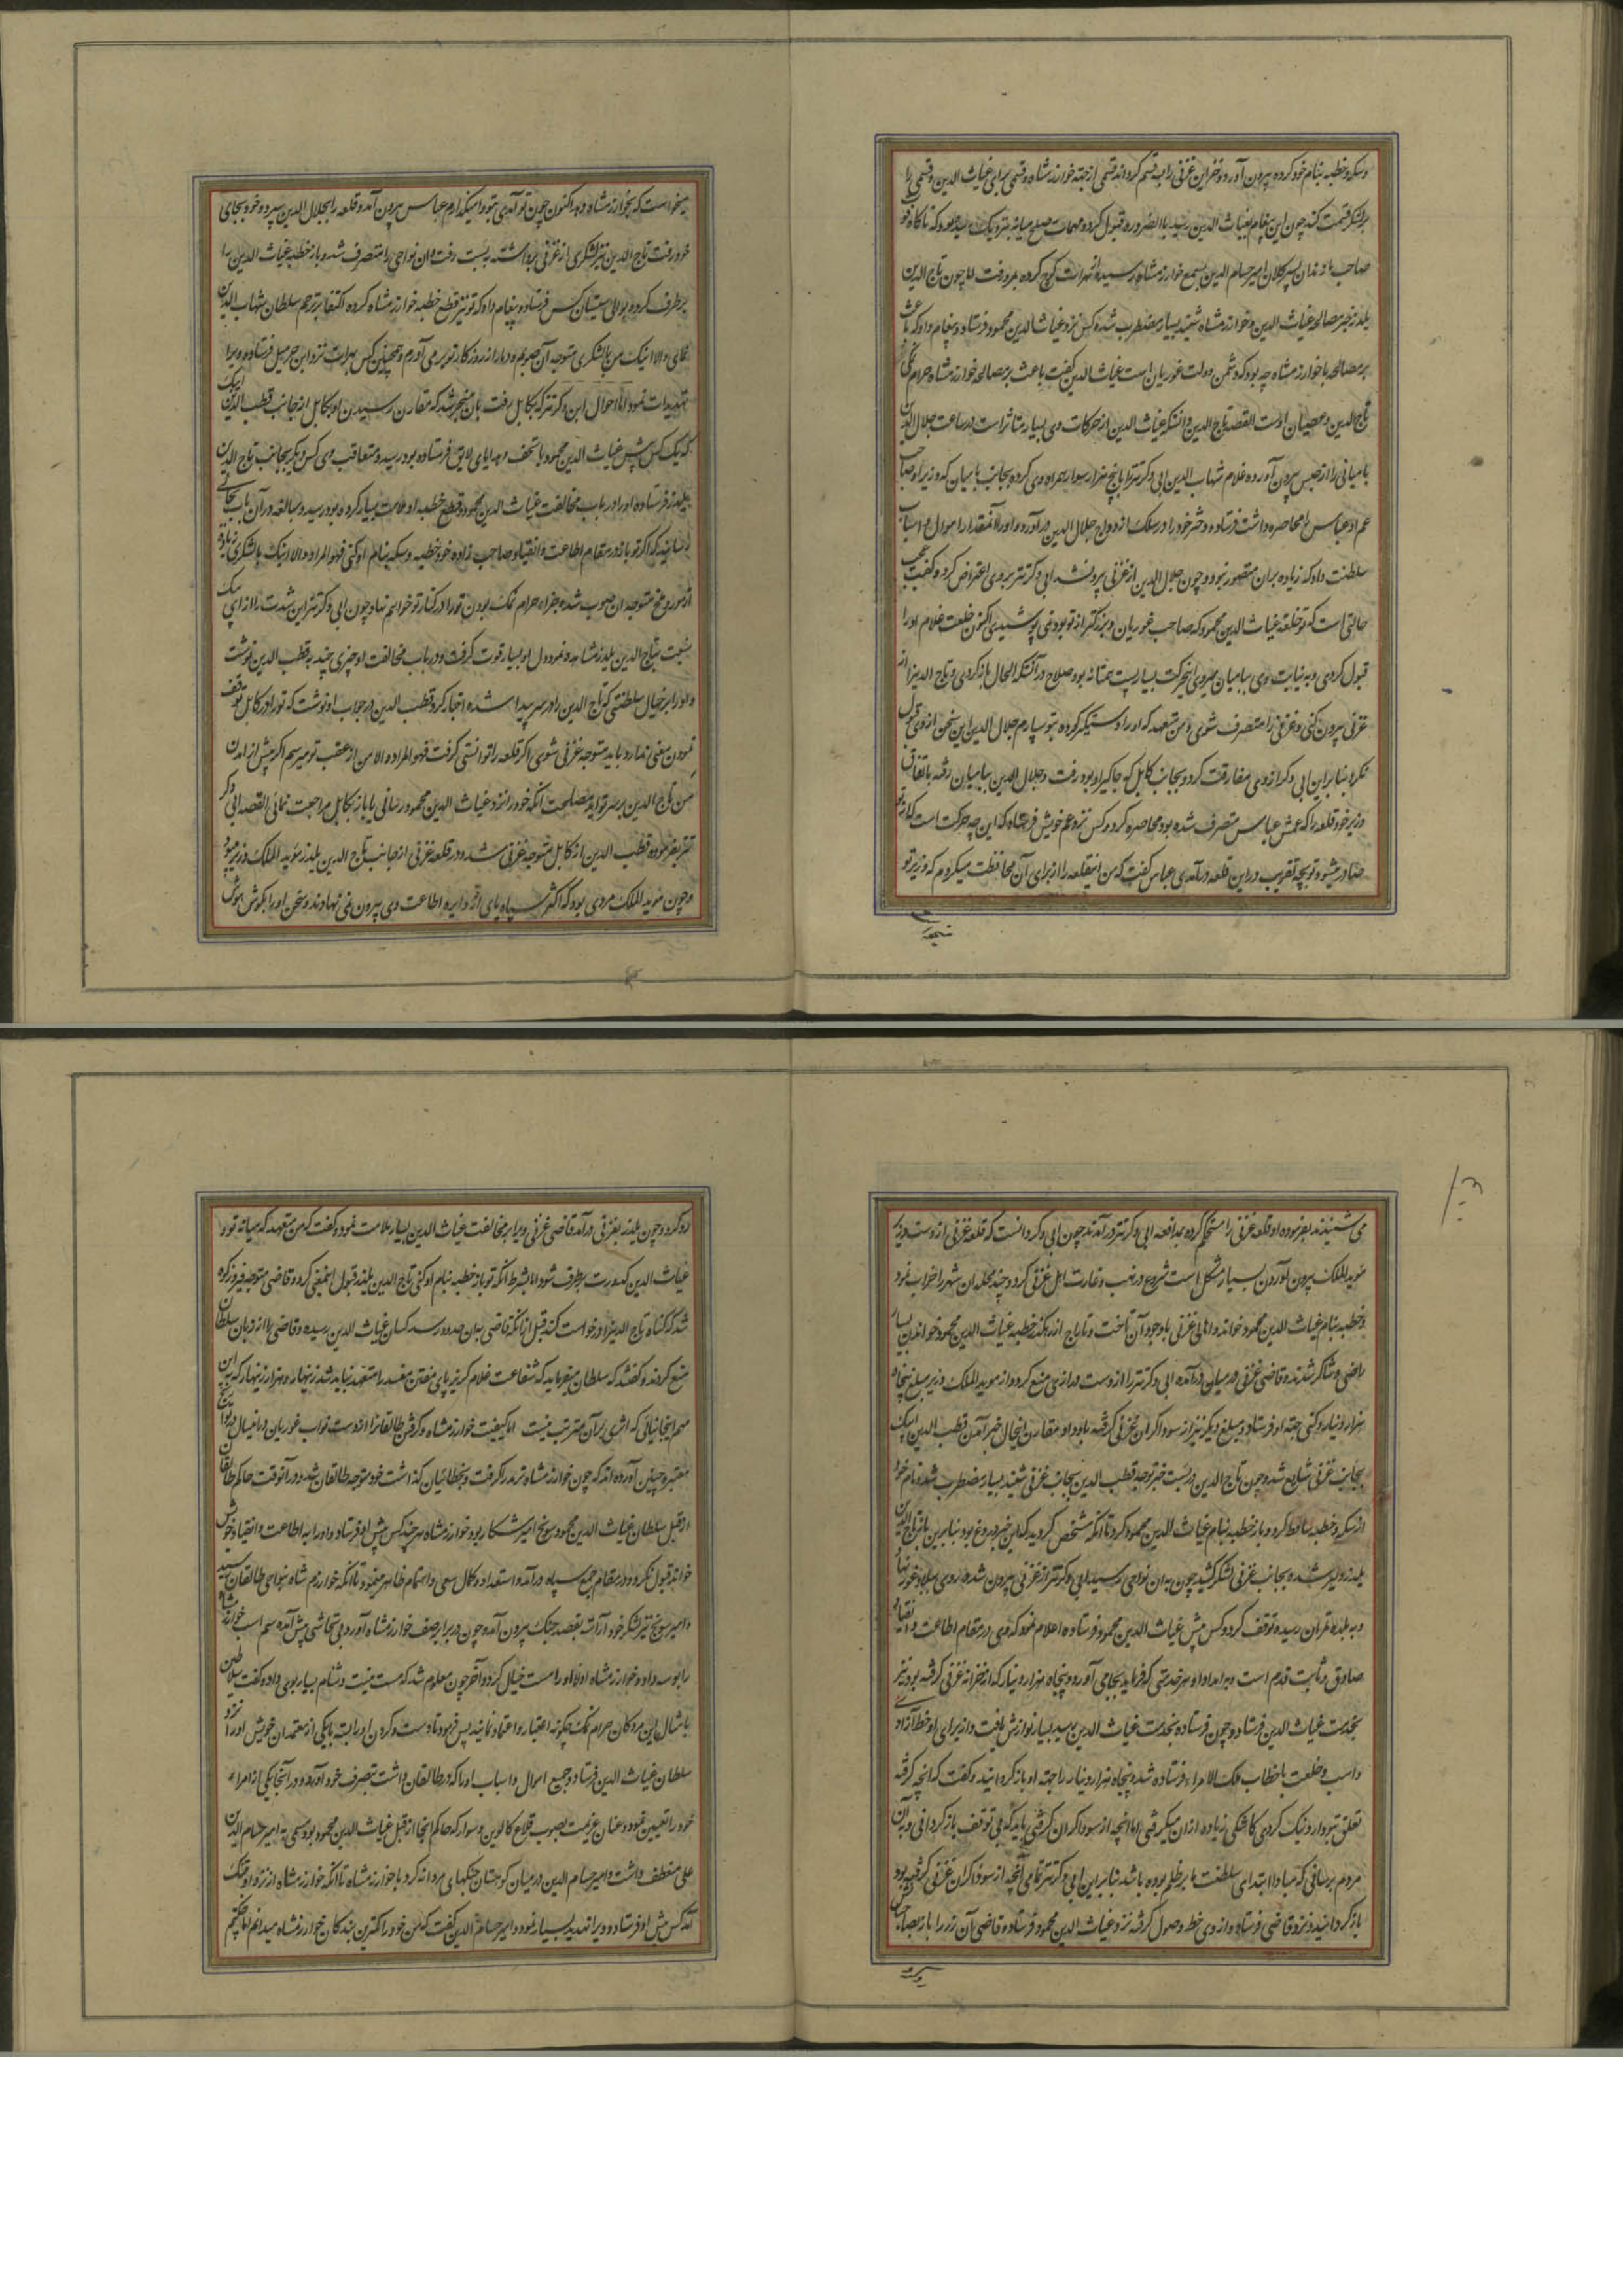 وسکه و خطبه بنام خود کرده بیرون آورد و خزاین غزنی را بسه قسم کرد اند قسمی از جهة خوارزمشاه و قسمی برای غیاث الدین و قسمی را
بر لشکر قسمت کند چون این پیغام بغیاث الدین رسید بالضروره قبول کرد و مهمات صلح میانه نزدیک رسیده بود که ناکاه فوت
صاحب مازندان پسر کلان امیر حسام الدین بسمع خوارزمشاه رسیده از هرات کوچ کرده بمرو رفت اما چون تاج الدین
یلدز خبر مصالحه غیاث الدین و خوارزمشاه شنید بسیار مضطرب شده کس نزد غیاث الدین محمود فرستاد و پیغام داد که باعث
بر مصالحه با خوارزمشاه چه بود که دشمن دولت غوریان است غیاث الدین گفت باعث بر مصالحه خوارزمشاه حرام نمکی
تاج الدین و عصیان اوست القصه تاج الدین دانست که غیاث الدین از حرکات وی بسیار متاثر است در ساعت جلال الدین
بامیانی را از حبس بیرون آورده غلام شهاب الدین ابی دکز تتر را با پنج هزار سوار همراه وی کرده بجانب بامیان که وزیر او صاحب
عم او عباس محاصره داشت فرستاد و دختر خود را در سلک ازدواج جلال الدین در آورد و او را آنمقدار اموال و اسباب
سلطنت داد که زیاده بران متصور نبود و چون جلال الدین از غزنی بیرون شد ابی دکز تتر بروی اعتراض کرد و گفت عجب
حالتی است که تو خلعت غیاث الدین محمود که صاحب غوریان و بزرگتر از تو بود نمی پوشیدی اکنون خلعت غلام او را
قبول کردی و به نیابت وی ببامیان میروی اینحرکت بسیار پست همتانه بود صلاح در آنست که الحال باز کردی و تاج الدینرا از
غزنی بیرون کنی و غزنی را متصرف شوی و من متعهدم که او را دستگیر کرده بتو سپارم جلال الدین این سخن از وی قبول
نکرد بنابراین ابی دکز از وی مفارقت کرد و بجانب کابل که جاگیر او بود رفت و جلال الدین ببامیان رفته باتفاق
وزیر خود قلعه را که عمش عباس متصرف شده بود محاصره کرد و کس نزد عم خویش فرستاد که این چه حرکت است که از تو
صادر میشود تو بچه تقریب در این قلعه در آمدی عباس گفت که من اینقلعه را از برای آن محافظت میکردم که وزیر تو
میخواست که بخوارزمشاه دهد اکنون چون تو آمدی بتو وا میگذارم عباس بیرون آمد و قلعه را بجلال الدین سپرد و خود بجای
خود رفت تاج الدین نیز لشکری از غزنی برداشته به بست رفت و آن نواحی را متصرف شد و باز خطبه غیاث الدین را
بر طرف کرد و بوالی سیستان کس فرستاد و پیغام داد که تو نیز قطع خطبه خوارزمشاه کرده اکتفا بترحم سلطان شهاب الدین
نمای والا اینک من با لشکری متوجه آن صوبم و دمار از روزگار تو بر می آورم و همچنین کس بهرات نزد ابن خرمیل فرستاد و ویرا
تهدیدات نمود اما احوال ابن دکز تتر که بکابل رفت بان منجر شد که مقارن رسیدن او بکابل از جانب قطب الدین ایبک
که یک کس پیش غیاث الدین محمود با تحف و هدایای لایق فرستاده بود رسید و متعاقب وی کس دیگر بجانب تاج الدین
یلدز فرستاده او را در باب مخالفت غیاث الدین محمود و قطع خطبه او ملامت بسیار کرده بود رسید و مبالغه در آن باب بجائی
رسانید که اگر تو باز در مقام اطاعت و انقیاد صاحب زاده خود خطبه و سکه بنام او کنی فهو المراد والا اینک با لشکری زیاده
از مور و ملخ متوجه آن صوب شده جزاء حرام نمک بودن تو را در کنار تو خواهیم نهاد و چون ابی دکز تتر این شدت را از ایبک
نسبت بتاج الدین یلدز مشاهده نمود دل او بسیار قوت گرفت و در باب مخالفت او چیزی چند به قطب الدین نوشت
و او را بر خیال سلطنتی که تاج الدین را در سر پیدا شده اخبار کرد قطب الدین در جواب او نوشت که تو را در کابل توقف
نمودن معنی ندارد باید متوجه غزنی شوی اگر قلعه را توانستی گرفت فهو المراد والا من از عقب تو میرسم اگر پیش از آمدن
من تاج الدین بر سر تو آید مصلحت آنکه خود را نزد غیاث الدین محمود رسانی یا باز بکابل مراجعت نمائی القصه ابی دکز
تتر بفرموده قطب الدین از کابل متوجه غزنی شد و در قلعه غزنی از جانب تاج الدین یلدز مؤید الملک وزیر بود
و چون موید الملک مردی بود که اکثر سپاه پای از دایره اطاعت وی بیرون نمی نهادند و سخن او را بگوش هوش
می شنیدند بفرموده او قلعه غزنی را مستحکم کرده بمدافعه ابی دکز تتر در آمدند چون ابی دکز دانست که قلعه غزنی از دست وزیر
موید الملک بیرون آوردن بسیار مشکل است شروع در نهب و غارت اهل غزنی کرد و چند محله ان شهر را خراب نمود
و خطبه بنام غیاث الدین محمود خواند و اهالی غزنی باوجود آن تاخت و تاراج از رهگذر خطبه غیاث الدین محمود خواندن بسیار
راضی و شاکر شدند و قاضی غزنی در میان در آمده ابی دکز تتر را از دست درازی منع کرد و از موید الملک وزیر مبلغ پنجاه
هزار دینار رکنی جهته او فرستاد و مبلغ دیگر نیز از سوداگران غزنی گرفته باو داد و مقارن اینحال خبر آمدن قطب الدین ایبک
بجانب غزنی شایع شد و چون تاج الدین در بست خبر توجه قطب الدین بجانب غزنی شنید بسیار مضطرب شد و نام خود
از سکه و خطبه ساقط کرد و باز خطبه بنام غیاث الدین محمود کرد تا آنکه مشخص گردید که این خبر دروغ بود بنابرین باز تاج الدین
یلدز دلیر شده بجانب غزنی لشکر کشید چون به ان نواحی رسید ابی دکز تتر از غزنی بیرون شده روی ببلاد غور نهاد
و به بلده تمران رسیده توقف کرد و کس پیش غیاث الدین محمود فرستاده اعلام نمود که وی در مقام اطاعت و انقیاد
صادق و ثابت قدم است و بر امداد او هر خدمتی که فرماید بجا می آورد و پنجاه هزار دینار که از خزانه غزنی گرفته بود نیز
بخدمت غیاث الدین فرستاد و چون فرستاده بخدمت غیاث الدین رسید بسیار نوازش یافت و از برای او خط آزادی
و اسب و خلعت با خطاب ملک الامراء فرستاده شد و پنجاه هزار دینار را جهته او باز گردانید و گفت که انچه گرفته
تعلق بتو دارد و نیک کردی کاشکی زیاده از ان میگرفتی اما انچه از سوداگران گرفتی باید که بی توقف باز گردانی و بآن
مردم برسانی که مبادا ابتدای سلطنت ما بر ظلم بوده باشد بنابراین ابی دکز تتر تمامی آنچه از سوداگران غزنی گرفته بود
باز گردانید و نزد قاضی فرستاد و از وی خط وصول گرفته نزد غیاث الدین محمود فرستاد و قاضی آن زر را باز بصاحبانش
رد کرد و چون یلدز بغزنی در آمد قاضی غزنی ویرا بر مخالفت غیاث الدین بسیار ملامت نمود و گفت که من متعهدم که میانه تو و
غیاث الدین کدورت بر طرف شود اما بشرط آنکه تو باز خطبه بنام او کنی تاج الدین یلدز قبول اینمعنی کرد و قاضی متوجه فیروزکوه
شد که گناه تاج الدینرا در خواست کند قبل از آنکه قاضی به ان حدود رسد کسان غیاث الدین رسیده و قاضی را از زبان سلطان
منع کردند و گفتند که سلطان میفرماید که شفاعت غلام گریزپای مفتن مفسد را متعهد نباید شد زینهار و هزار زینهار که به این
مهم اینجا نیائی که اثری بر آن مترتب نیست اما کیفیت خوارزمشاه و گرفتن طالقانرا از دست نواب غوریان در انسال در تواریخ
معتبره چنین آورده اند که چون خوارزمشاه ترمد را گرفت و بخطائیان گذاشت خود متوجه طالقان شد و در آنوقت حاکم طالقان
از قبل سلطان غیاث الدین محمود سونج امیر شکار بود خوارزمشاه هر چند کس پیش او فرستاد و او را به اطاعت و انقیاد خویش
خواند قبول نکرد و در مقام جمع سپاه در آمد و استعداد و کمال سعی و اهتمام ظاهر مینمود تا آنکه خوارزم شاه بنواحی طالقان رسید
و امیر سونج نیز لشکر خود آراسته بقصد جنگ بیرون آمد و چون در برابر صف خوارزمشاه آورد بی تحاشی پیش آمده سم اسب خوارزمشاه
را بوسه داد و خوارزمشاه اولا او را مست خیال کرد و آخر چون معلوم شد که مست نیست دشنام بسیار بوی داد و گفت سلاطین
با مثال این مردکان حرام نمک چگونه اعتبار و اعتماد نمایند پس فرمود تا دست و گردن او را بسته با یکی از معتمدان خویش او را نزد
سلطان غیاث الدین فرستاد و جمیع اموال و اسباب او را که در طالقان داشت بتصرف خود آورد و در آنجا یکی از امراء
خود را تعیین نمود و عنان عزیمت بصوب قلاع کالوین و سوار که حاکم آنجا از قبل غیاث الدین محمود بود مسمی به امیر حسام الدین
علی منعطف داشت و امیر حسام الدین در میان کوهستان جنگهای مردانه کرد با خوارزمشاه تا آنکه خوارزمشاه از نزد او بتنگ
آمد کس پیش او فرستاد و ویرا تهدید بسیار نمود و امیر حسام الدین گفت که من خود را کمترین بندکان خوارزمشاه میدانم اما چکنم